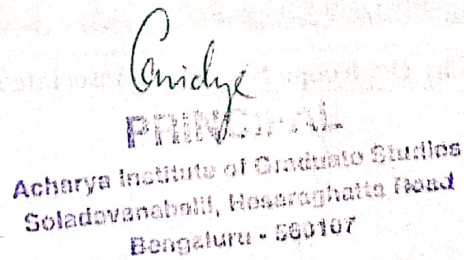 PRINCIPAL
Acharya Institute of Graduate Studies
Soladevanahalli, Hesaraghatta Road
Bengaluru - 560107